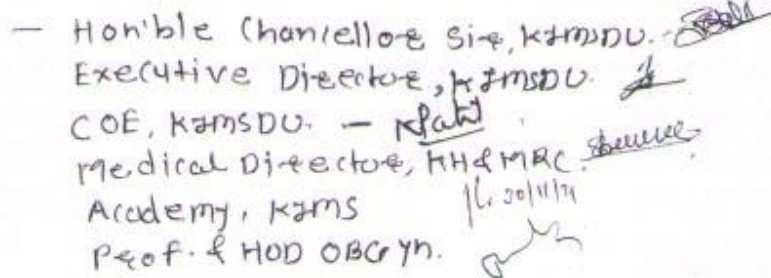 — Hon'ble Chancellor Sir, KIMSDU.
Executive Director, KIMSDU.
COE, KIMSDU. — KPatil
Medical Director, KH&MRC.
Academy, KIMS
Prof. & HOD OBGYn.